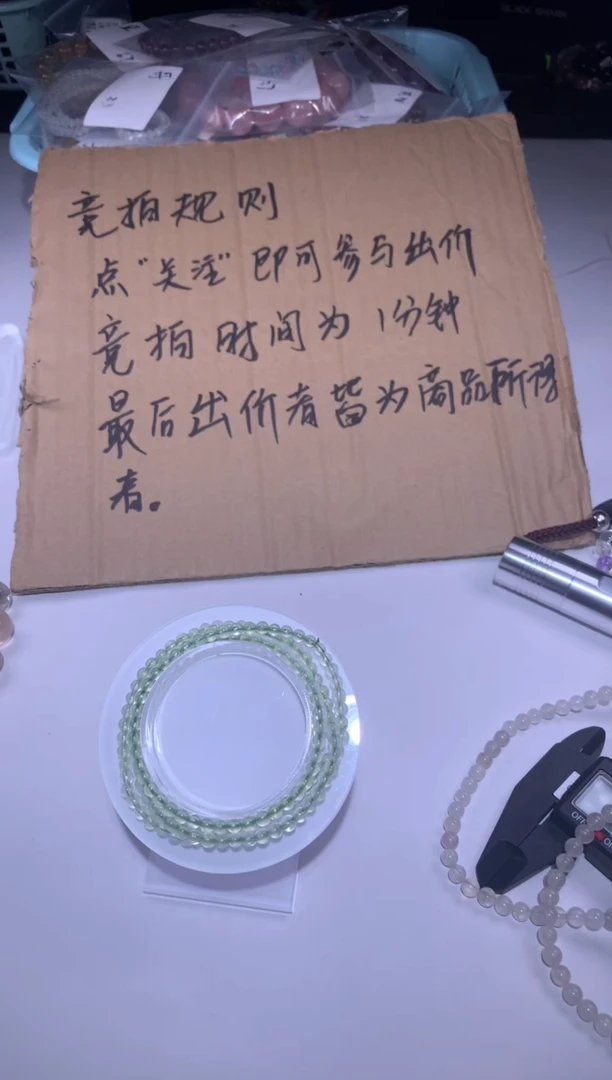 BLACK SHARK
竞拍规则
点“关注”即可参与出价
竞拍时间为1分钟
最后出价者皆为商品所得
者。
OFF
ON